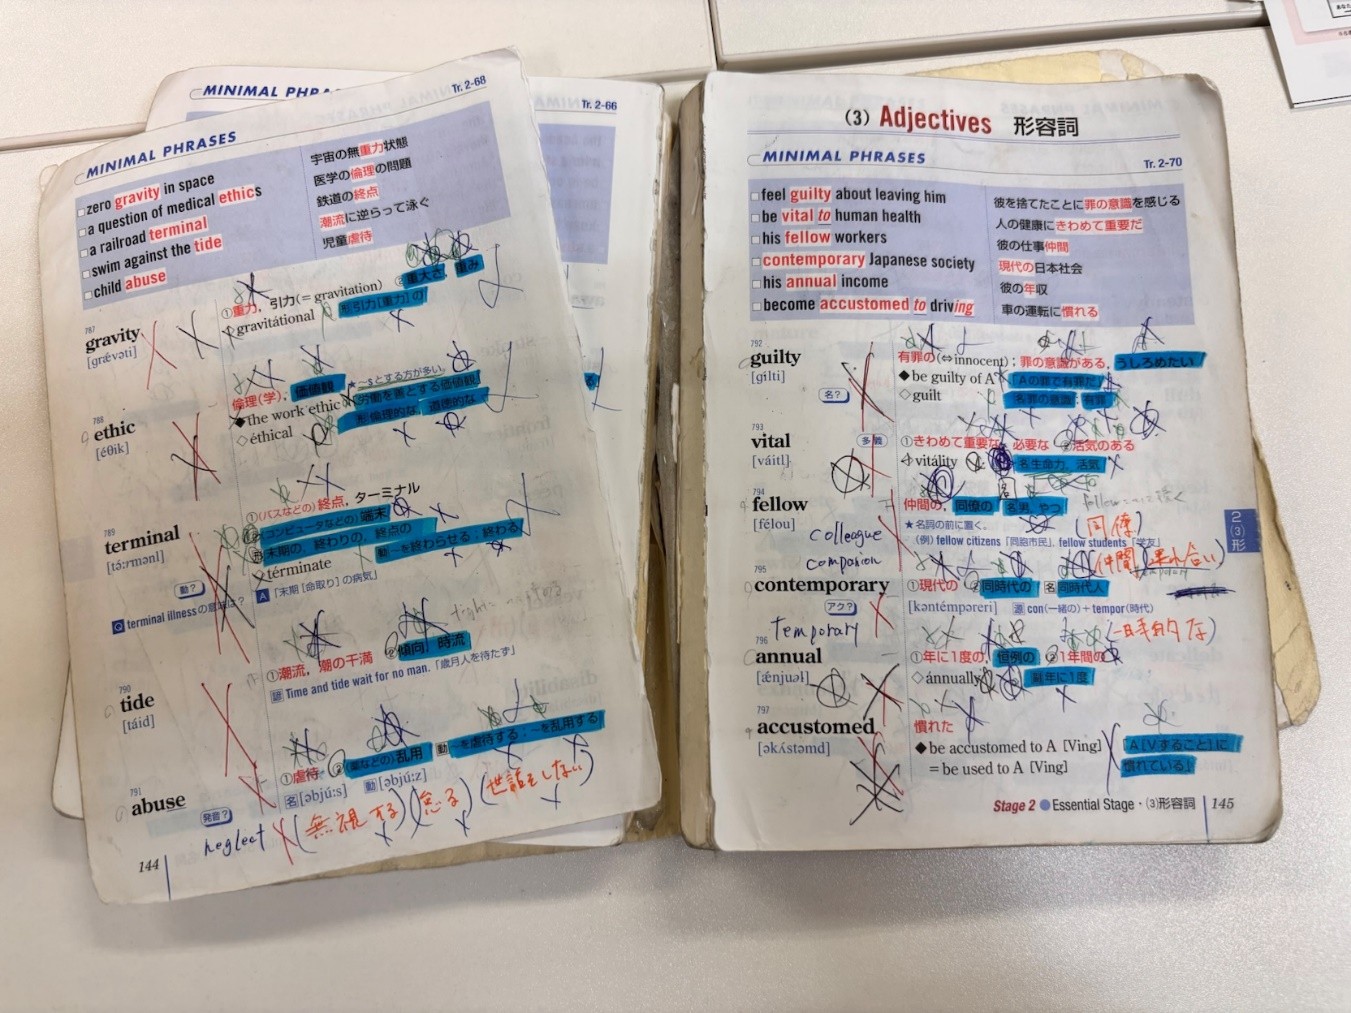 MINIMAL PHRASES
Tr. 2-68
zero gravity in space
宇宙の無重力状態
a question of medical ethics
医学の倫理の問題
a railroad terminal
鉄道の終点
swim against the tide
潮流に逆らって泳ぐ
child abuse
児童虐待
787
gravity
[grǽvəti]
①重力, 引力(= gravitation) ②重大さ, 重み
◇gravitátional 形引力[重力]の
788
ethic
[éθik]
倫理(学), 価値観 ★〜sとする方が多い。
◆the work ethic 労働を善とする価値観
◇éthical 形倫理的な, 道徳的な
789
terminal
[tə́ːrmənl]
動?
①(バスなどの)終点, ターミナル
②(コンピュータなどの)端末
形末期の, 終わりの, 終点の
◇términate 動〜を終わらせる; 終わる
Q terminal illnessの意味は?
A 「末期[命取り]の病気」
790
tide
[táid]
①潮流, 潮の干満 ②傾向, 時流
諺 Time and tide wait for no man.「歳月人を待たず」
791
abuse
発音?
①虐待 ②(薬などの)乱用 動〜を虐待する; 〜を乱用する
名[əbjúːs] 動[əbjúːz]
neglect (無視する) (怠る) (世話をしない)
144
MINIMAL PHRA
Tr. 2-66
(3) Adjectives 形容詞
MINIMAL PHRASES
Tr. 2-70
feel guilty about leaving him
彼を捨てたことに罪の意識を感じる
be vital to human health
人の健康にきわめて重要だ
his fellow workers
彼の仕事仲間
contemporary Japanese society
現代の日本社会
his annual income
彼の年収
become accustomed to driving
車の運転に慣れる
792
guilty
[gílti]
名?
有罪の(⇔innocent); 罪の意識がある, うしろめたい
◆be guilty of A 「Aの罪で有罪だ」
◇guilt 名罪の意識; 有罪
793
vital
[váitl]
多義
①きわめて重要な, 必要な ②活気のある
◇vitálity 名生命力, 活気
794
fellow
[félou]
仲間の, 同僚の 名男, やつ
★名詞の前に置く。
(例) fellow citizens「同胞市民」, fellow students「学友」
colleague (同僚)
companion (仲間, 連れ合い)
795
contemporary
[kəntémpəreri]
アク?
①現代の ②同時代の 名同時代人
源 con(一緒の)+tempor(時代)
temporary (一時的な)
796
annual
[ǽnjuəl]
①年に1度の, 恒例の ②1年間の
◇ánnually 副年に1度
797
accustomed
[əkʌ́stəmd]
慣れた
◆be accustomed to A [Ving] 「A[Vすること]に
= be used to A [Ving] 慣れている」
2
(3)
形
Stage 2 ●Essential Stage・(3)形容詞 145